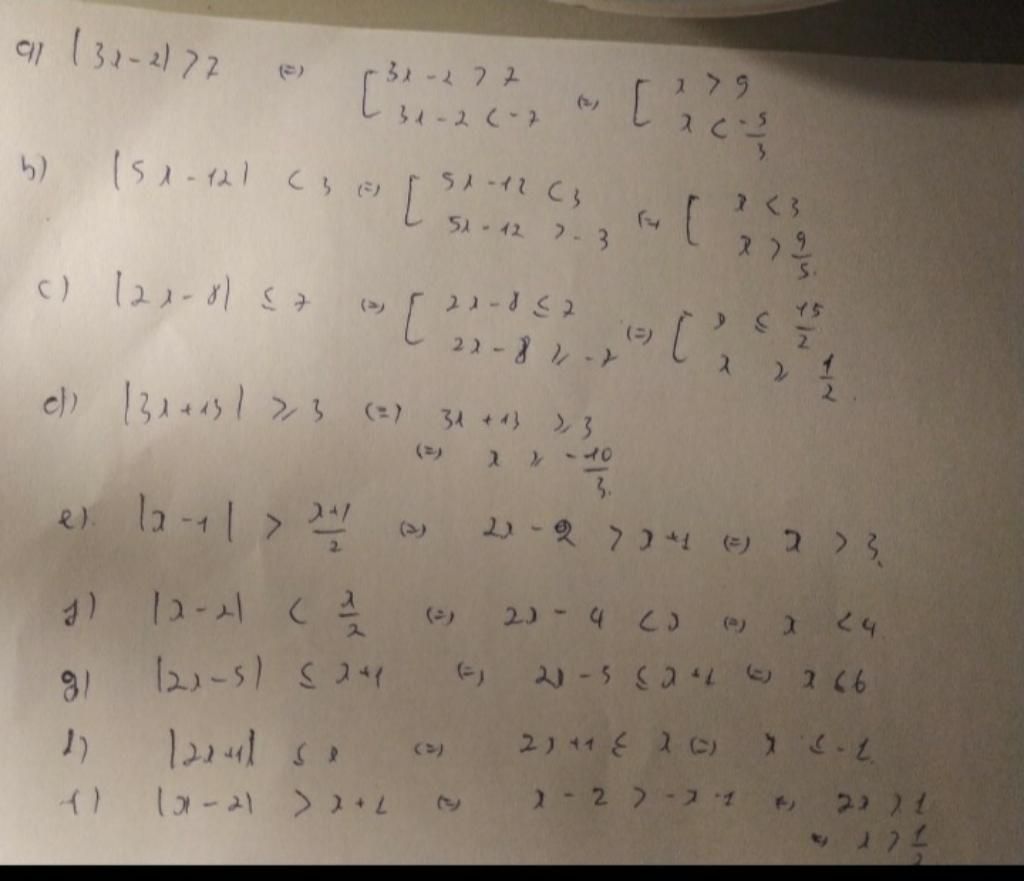 a) |3x-2| > 7 (=) [ 3x-2 > 7 (=) [ x > 9
3x-2 < -7 x < -5/3
b) |5x-12| < 3 (=) [ 5x-12 < 3 (=) [ x < 3
5x-12 > -3 x > 9/5.
c) |2x-8| ≤ 7 (=) [ 2x-8 ≤ 7 (=) [ x ≤ 15/2
2x-8 ≥ -7 x ≥ 1/2.
d) |3x+13| ≥ 3 (=) 3x+13 ≥ 3
(=) x ≥ -10/3.
e). |x-1| > x+1/2 (=) 2x-2 > x+1 (=) x > 3.
f) |x-2| < x/2 (=) 2x-4 < x (=) x < 4
g) |2x-5| ≤ x+1 (=) 2x-5 ≤ x+1 (=) x ≤ 6
h) |2x+1| ≤ x (=) 2x+1 ≤ x (=) x ≤ -1
i) |x-2| > x+1 (=) x-2 > -x-1 (=) 2x > 1
(=) x > 1/2